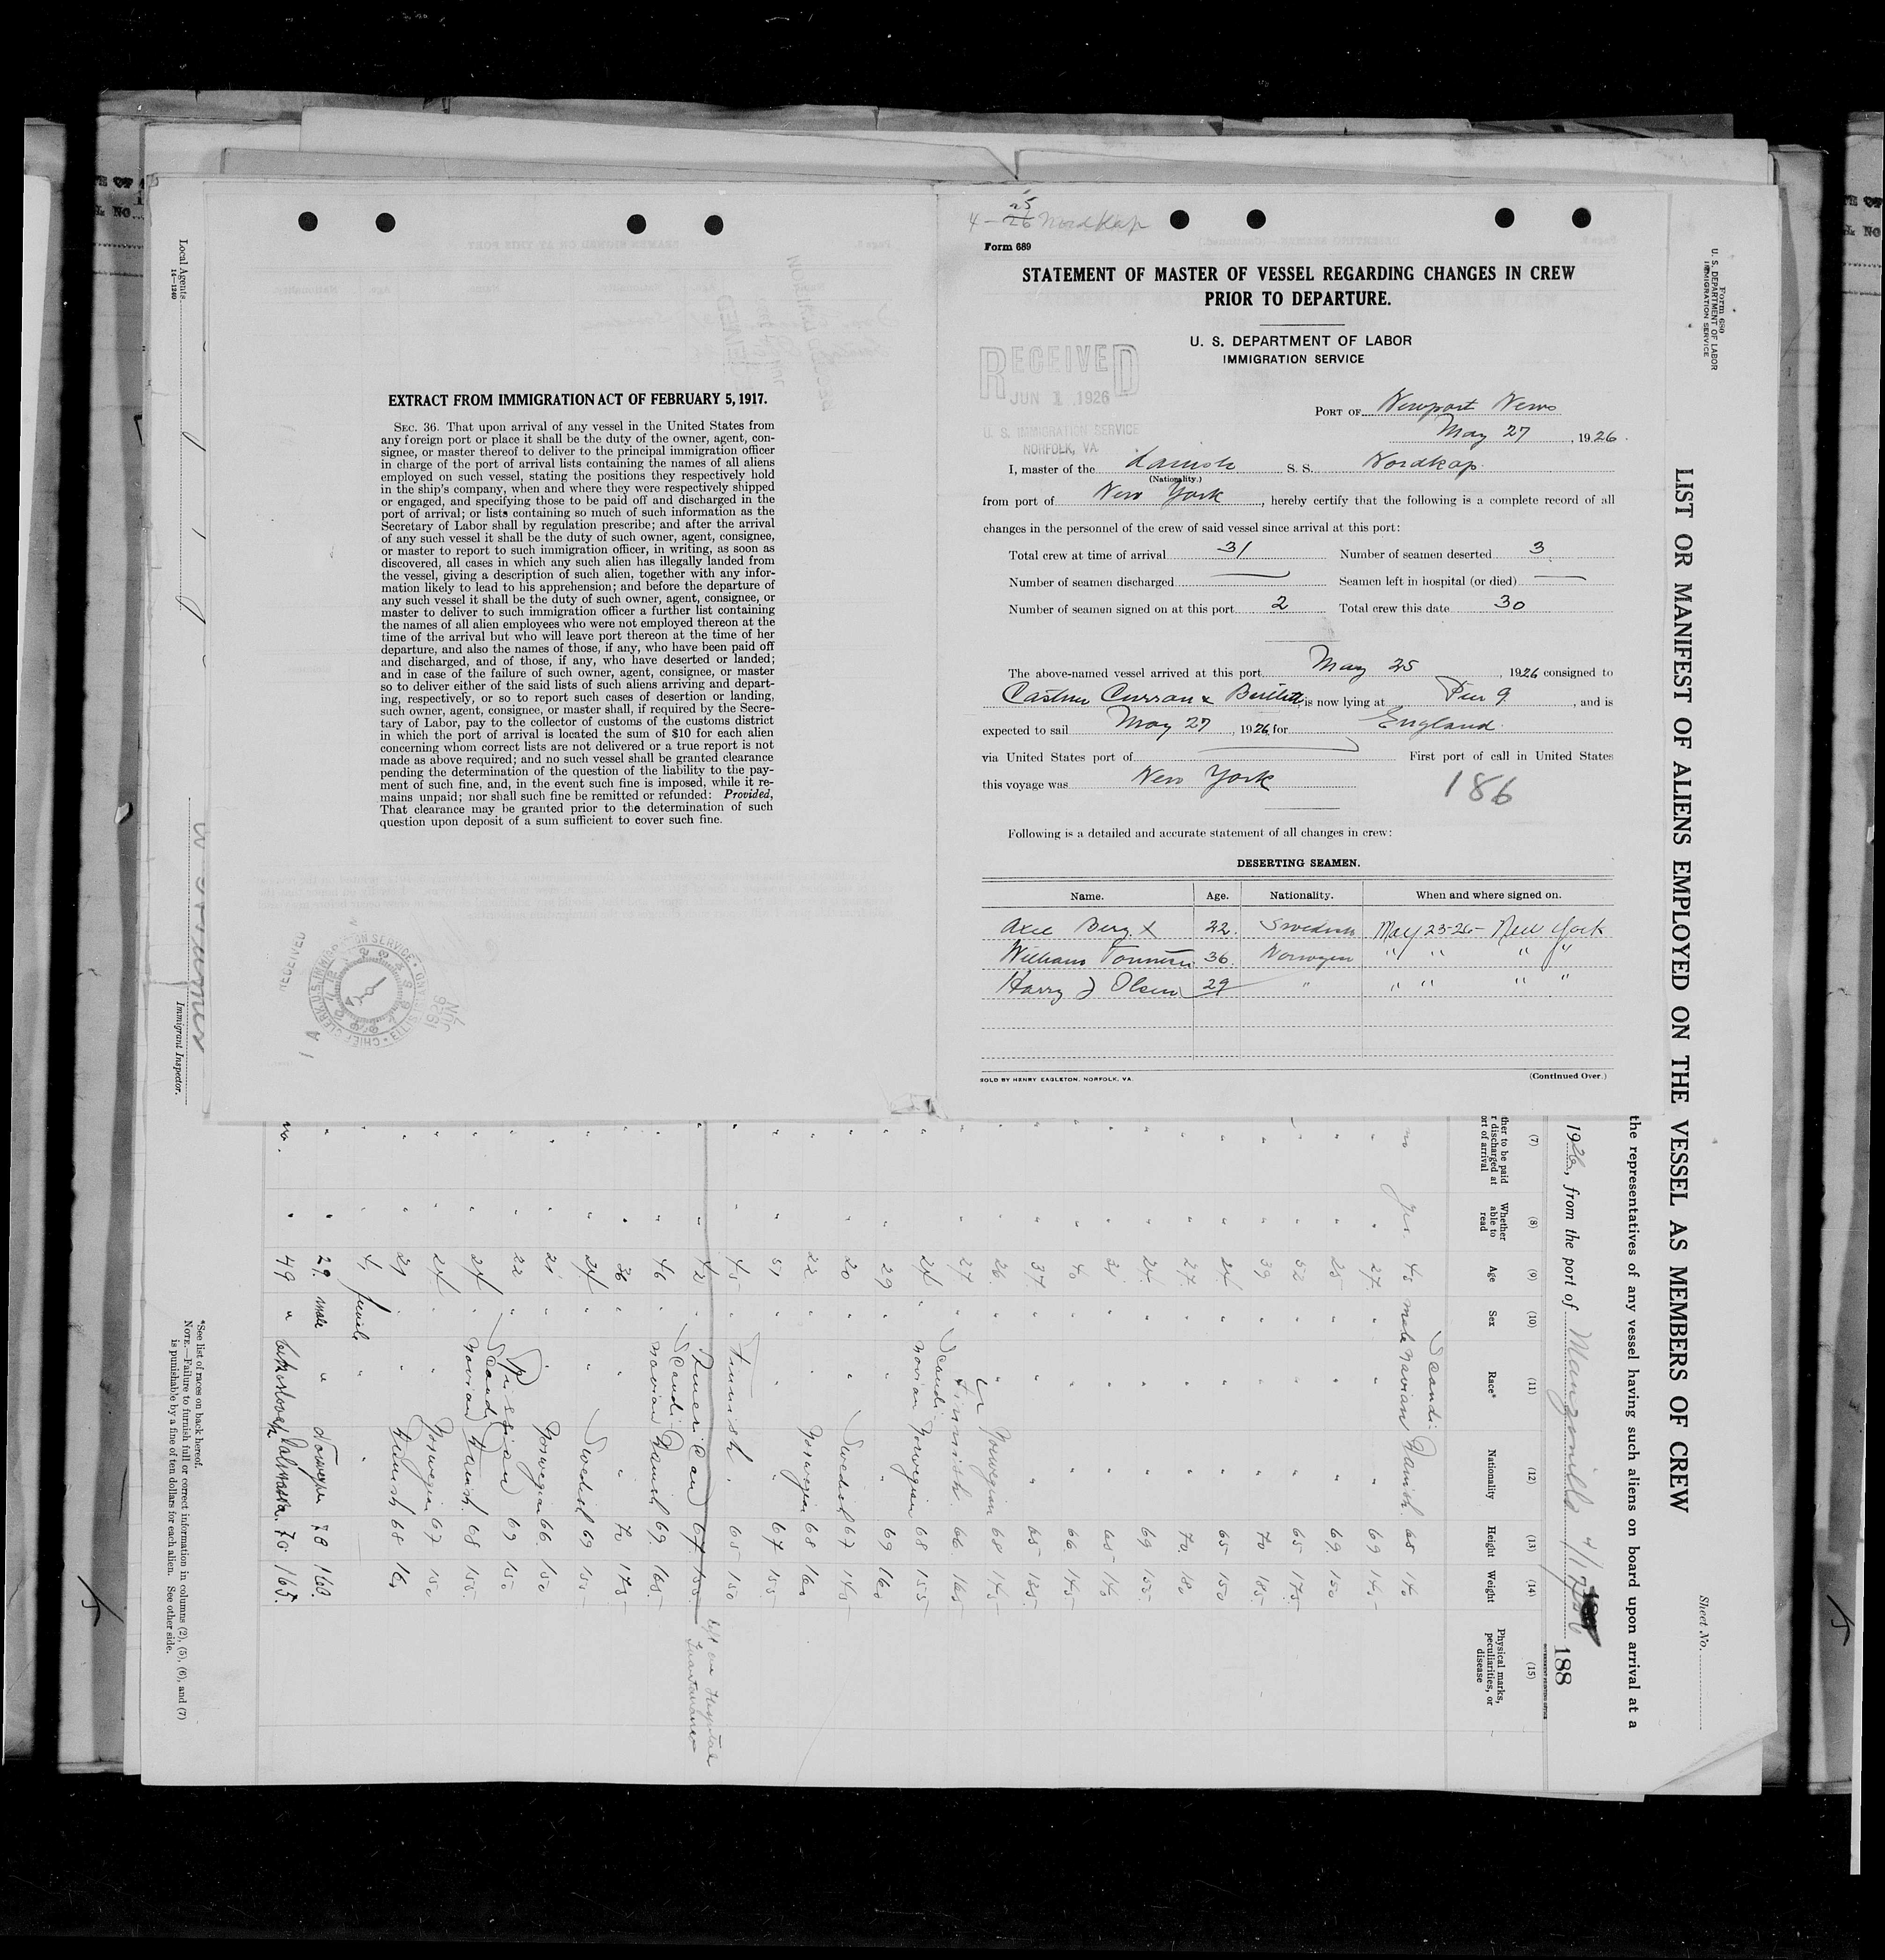 4 - 25
26 Nordkap
Form 689
STATEMENT OF MASTER OF VESSEL REGARDING CHANGES IN CREW
PRIOR TO DEPARTURE.
U. S. DEPARTMENT OF LABOR
IMMIGRATION SERVICE
RECEIVED
JUN 1 1926
U. S. IMMIGRATION SERVICE
NORFOLK, VA.
PORT OF Newport News
May 27, 1926.
I, master of the danish S. S. Nordkap.
(Nationality.)
from port of New York, hereby certify that the following is a complete record of all
changes in the personnel of the crew of said vessel since arrival at this port:
Total crew at time of arrival 31 Number of seamen deserted 3
Number of seamen discharged — Seamen left in hospital (or died) —
Number of seamen signed on at this port 2 Total crew this date 30
The above-named vessel arrived at this port May 25, 1926 consigned to
Castner Curran & Bullitt, is now lying at Pier 9, and is
expected to sail May 27, 1926, for England.
via United States port of — First port of call in United States
this voyage was New York
186
Following is a detailed and accurate statement of all changes in crew:
DESERTING SEAMEN.
Name. Age. Nationality. When and where signed on.
Axel Berg x 22. Swedish May 23-26 - New York
William 36. Norwegian " " " "
Harry J Olsen 29 " " " " "
SOLD BY HENRY EAGLETON, NORFOLK, VA.
(Continued Over.)
EXTRACT FROM IMMIGRATION ACT OF FEBRUARY 5, 1917.
SEC. 36. That upon arrival of any vessel in the United States from
any foreign port or place it shall be the duty of the owner, agent, con-
signee, or master thereof to deliver to the principal immigration officer
in charge of the port of arrival lists containing the names of all aliens
employed on such vessel, stating the positions they respectively hold
in the ship's company, when and where they were respectively shipped
or engaged, and specifying those to be paid off and discharged in the
port of arrival; or lists containing so much of such information as the
Secretary of Labor shall by regulation prescribe; and after the arrival
of any such vessel it shall be the duty of such owner, agent, consignee,
or master to report to such immigration officer, in writing, as soon as
discovered, all cases in which any such alien has illegally landed from
the vessel, giving a description of such alien, together with any infor-
mation likely to lead to his apprehension; and before the departure of
any such vessel it shall be the duty of such owner, agent, consignee, or
master to deliver to such immigration officer a further list containing
the names of all alien employees who were not employed thereon at the
time of the arrival but who will leave port thereon at the time of her
departure, and also the names of those, if any, who have been paid off
and discharged, and of those, if any, who have deserted or landed;
and in case of the failure of such owner, agent, consignee, or master
so to deliver either of the said lists of such aliens arriving and depart-
ing, respectively, or so to report such cases of desertion or landing,
such owner, agent, consignee, or master shall, if required by the Secre-
tary of Labor, pay to the collector of customs of the customs district
in which the port of arrival is located the sum of $10 for each alien
concerning whom correct lists are not delivered or a true report is not
made as above required; and no such vessel shall be granted clearance
pending the determination of the question of the liability to the pay-
ment of such fine, and, in the event such fine is imposed, while it re-
mains unpaid; nor shall such fine be remitted or refunded: Provided,
That clearance may be granted prior to the determination of such
question upon deposit of a sum sufficient to cover such fine.
Local Agents
14—1240
Immigrant Inspector.
Form 680
U. S. DEPARTMENT OF LABOR
IMMIGRATION SERVICE
Sheet No.
LIST OR MANIFEST OF ALIENS EMPLOYED ON THE VESSEL AS MEMBERS OF CREW
the representatives of any vessel having such aliens on board upon arrival at a
1926, from the port of Manzanillo
188
(7) (8) (9) (10) (11) (12) (13) (14) (15)
Whether able to read Age Sex Race* Nationality Height Weight Physical marks, peculiarities, or disease
no yes 45 male Scandinavian Danish 65 140
27 " " " 69 145
25 " " " 69 150
52 " " " 65 175
39 " " " 70 185
24 " " " 65 150
27 " " " 70 180
24 " " " 69 155
21 " " " 65 140
40 " " " 66 145
37 " " " 65 135
26 " " Norwegian 68 145
27 " Finnish 66 165
24 " Scandinavian Norwegian 68 155
29 " " " 69 160
20 " " Swedish 67 145
22 " " Norwegian 68 160
51 " " " 67 155
45 " Finnish " 65 150
42 " American 67 150 left in Hospital
46 " Scandinavian Danish 69 165
36 " " " 70 175
24 " " Swedish 69 155
21 " " Norwegian 66 150
22 " Russian 69 150
24 " Scandinavian Danish 68 155
24 " " Norwegian 67 150
21 " " Danish 68 160
4 female " "
29 male " Norwegian 70 160
no. " 49 " 70 165
*See list of races on back hereof.
NOTE.—Failure to furnish full or correct information in columns (2), (5), (6), and (7)
is punishable by a fine of ten dollars for each alien. See other side.